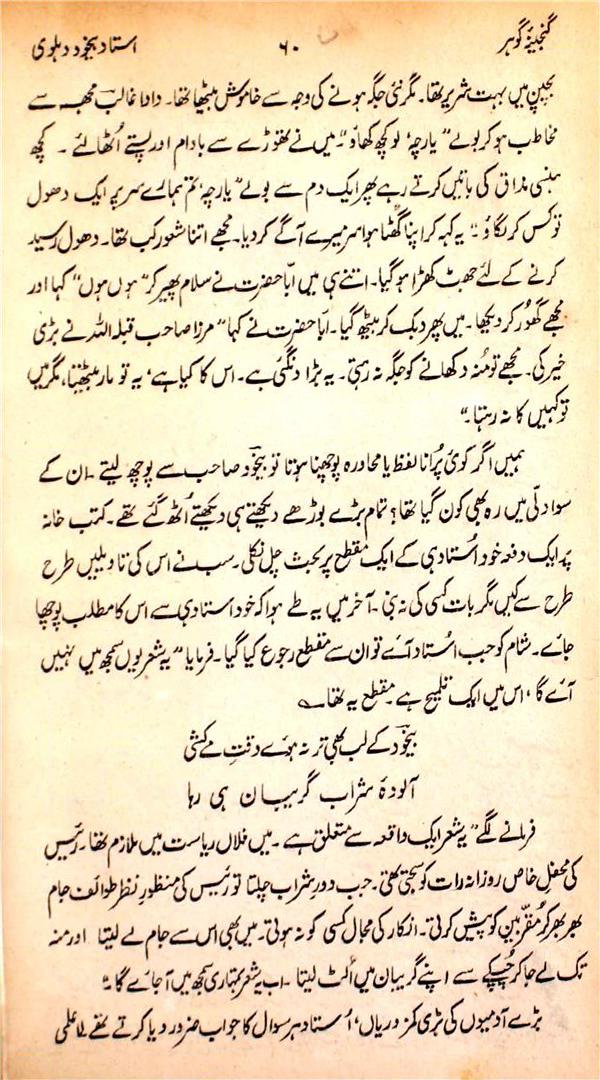 گنجینۂ گوہر ۶۰ استاد بیخود دہلوی
بچپن میں بہت شریر تھا۔ مگر نئی جگہ ہونے کی وجہ سے خاموش بیٹھا تھا۔ دادا غالب مجھ سے
مخاطب ہوکر بولے "یارچہ، لو کچھ کھاؤ"۔ میں نے تھوڑے سے بادام اور پستے اُٹھالئے ۔ کچھ
ہنسی مذاق کی باتیں کرتے رہے پھر ایک دم سے بولے "یارچہ، تم ہمارے سر پر ایک دھول
تو کس کر لگاؤ"۔ یہ کہہ کر اپنا گھٹا ہوا سر میرے آگے کردیا۔ مجھے اتنا شعور کب تھا۔ دھول رسید
کرنے کے لئے جھٹ کھڑا ہوگیا۔ اتنے ہی میں ابّا حضرت نے سلام پھیر کر "ہوں ہوں" کہا اور
مجھے گھُور کر دیکھا۔ میں پھر دبک کر بیٹھ گیا۔ ابّا حضرت نے کہا "مرزا صاحب قبلہ اللہ نے بڑی
خیر کی۔ مجھے تو مُنہ دکھانے کو جگہ نہ رہتی۔ یہ بڑا دنگئی ہے۔ اس کا کیا ہے، یہ تو مار بیٹھتا، مگر میں
تو کہیں کا نہ رہتا۔"
ہمیں اگر کوئی پُرانا لفظ یا محاورہ پوچھنا ہوتا تو بیخود صاحب سے پوچھ لیتے ۔ ان کے
سوا دلّی میں رہ بھی کون گیا تھا؟ تمام بڑے بوڑھے دیکھتے ہی دیکھتے اُٹھ گئے تھے۔ کتب خانہ
پر ایک دفعہ خود اُستاد ہی کے ایک مقطع پر بحث چل نکلی۔ سب نے اس کی تاویلیں طرح
طرح سے کیں مگر بات کسی کی نہ بنی ۔ آخر میں یہ طے ہوا کہ خود استاد ہی سے اس کا مطلب پوچھا
جائے۔ شام کو جب اُستاد آئے تو ان سے مقطع رجوع کیا گیا۔ فرمایا "یہ شعر یوں سمجھ میں نہیں
آئے گا، اس میں ایک تلمیح ہے۔ مقطع یہ تھا ؎
بیخود کے لب بھی تر نہ ہوئے وقتِ مے کشی
آلودۂ شراب گریبان ہی رہا
فرمانے لگے "یہ شعر ایک واقعہ سے متعلق ہے ۔ میں فلاں ریاست میں ملازم تھا۔ رئیس
کی محفلِ خاص روزانہ رات کو سجتی تھی۔ جب دورِ شراب چلتا تو رئیس کی منظورِ نظر طوائف جام
بھر بھر کر مُقرّبین کو پیش کرتی۔ انکار کی مجال کسی کو نہ ہوتی۔ میں بھی اس سے جام لے لیتا اور منہ
تک لے جا کر چُپکے سے اپنے گریبان میں اُلٹ لیتا ۔ اب یہ شعر تمہاری سمجھ میں آجائے گا۔"
بڑے آدمیوں کی بڑی کمزوریاں، اُستاد ہر سوال کا جواب ضرور دیا کرتے تھے لاعلمی